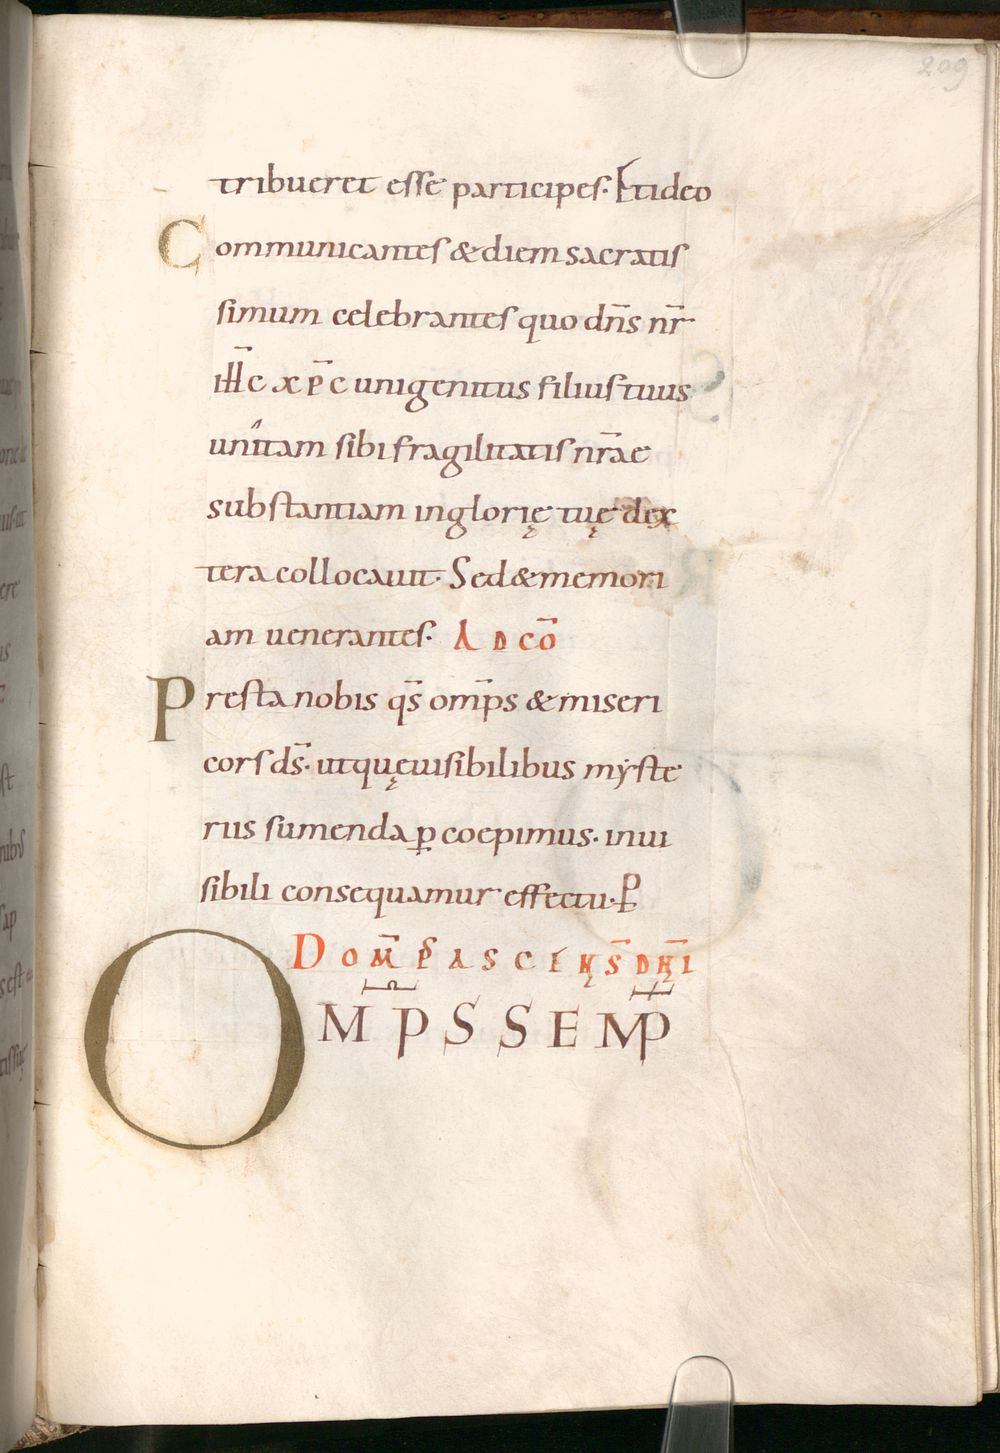 209
tribueret esse participes. Et ideo
Communicantes & diem sacratis
simum celebrantes quo dn̄s nr̄
ih̄c xp̄c unigenitus filius tuus
unitam sibi fragilitatis nr̄ae
substantiam in glorię tuę dex
tera collocauit. Sed & memori
am uenerantes. AD CŌ
Presta nobis qs̄ om̄ps & miseri
cors ds̄. ut quę uisibilibus myste
riis sumenda p̲coepimus. inui
sibili consequamur effectu. P̲
DOM̄ P̄ ASCENS̄ DN̄I
OM̄PS SEMP̄